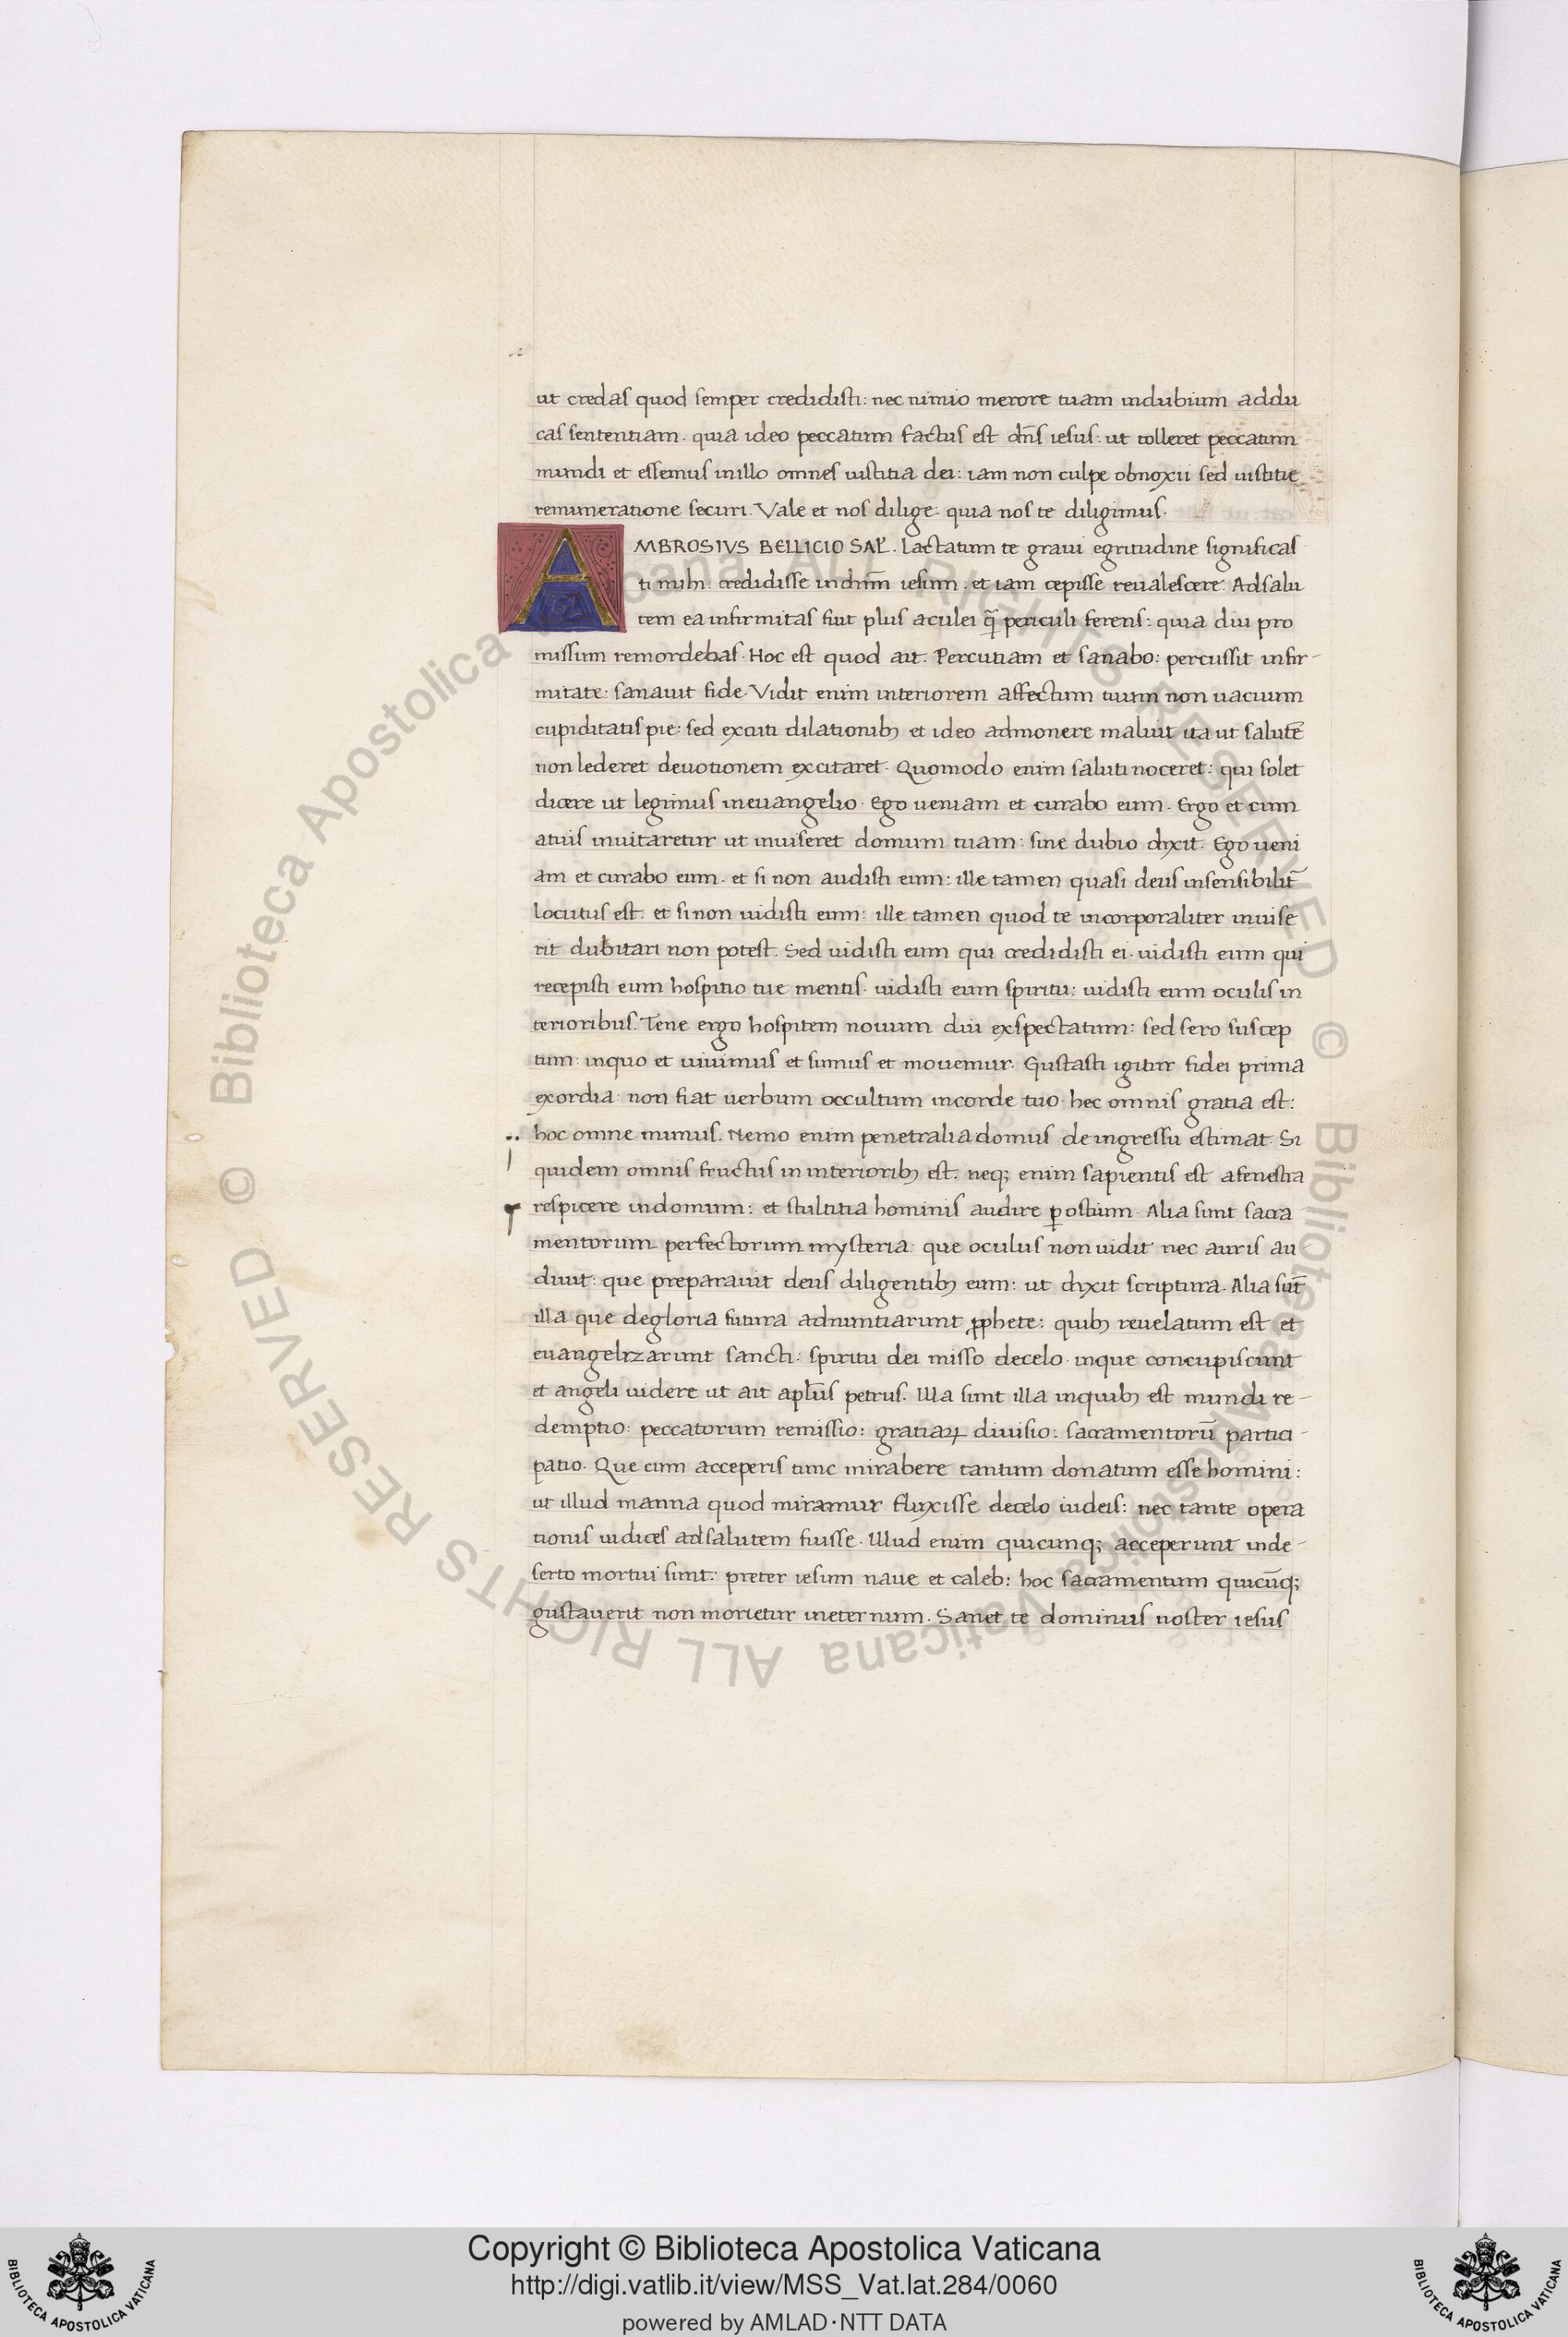 ut credas quod semper credidisti: nec nimio merore tuam indubium addu
cas sententiam. quia ideo peccatum factus est dn̄s iesus: ut tolleret peccatum
mundi et essemus inillo omnes iustitia dei: iam non culpe obnoxii sed iustitie
remuneratione securi. Vale et nos dilige: quia nos te diligimus.
AMBROSIVS BELLICIO SAL̄. Lactatum te graui egritudine significas
ti mihi: credidisse inchr̄m iesum: et iam cepisse reualescere. Adsalu
tem ea infirmitas fuit plus aculei q̄ periculi ferens: quia diu pro
missum remordebas. Hoc est quod ait. Percutiam et sanabo: percussit infir-
mitate: sanauit fide. Vidit enim interiorem affectum tuum non uacuum
cupiditatis pie: sed excuti dilationibꝫ et ideo admonere maluit ita ut salutē
non lederet deuotionem excitaret. Quomodo enim saluti noceret: qui solet
dicere ut legimus ineuangelio. Ego ueniam et curabo eum. Ergo et cum
atuis inuitaretur ut inuiseret domum tuam: sine dubio dixit. Ego ueni
am et curabo eum. et si non audisti eum: ille tamen quasi deus insensibilit̄
locutus est. et sinon uidisti eum: ille tamen quod te incorporaliter inuise
rit dubitari non potest. Sed uidisti eum qui credidisti ei. uidisti eum qui
recepisti eum hospitio tue mentis. uidisti eum spiritu: uidisti eum oculis in
terioribus. Tene ergo hospitem nouum diu exspectatum: sed sero suscep
tum: inquo et uiuimus et sumus et mouemur. Gustasti igitur fidei prima
exordia: non fiat uerbum occultum incorde tuo. hec omnis gratia est:
hoc omne munus. Nemo enim penetralia domus de ingressu estimat. Si
quidem omnis fructus in interioribꝫ est. neqꝫ enim sapientis est afenestra
respicere indomum: et stultitia hominis audire ꝑ ostium. Alia sunt sacra
mentorum perfectorum mysteria: que oculus non uidit nec auris au
diuit: que preparauit deus diligentibꝫ eum: ut dixit scriptura. Alia sūt
illa que degloria futura adnuntiarunt ꝓphete: quibꝫ reuelatum est et
euangelizarunt sancti: spiritu dei misso decelo. inque concupiscunt
et angeli uidere ut ait apl̄us petrus. Illa sunt illa inquibꝫ est mundi re-
demptio: peccatorum remissio: gratiaꝝ diuisio: sacramentorū partici-
patio. Que cum acceperis tunc mirabere tantum donatum esse homini:
ut illud manna quod miramur fluxisse decelo iudeis: nec tante opera
tionis iudices adsalutem fuisse. Illud enim quicunqꝫ acceperunt inde-
serto mortui sunt: preter iesum naue et caleb: hoc sacramentum quicūqꝫ
gustauerit non morietur ineternum. Sanet te dominus noster iesus
Copyright © Biblioteca Apostolica Vaticana
http://digi.vatlib.it/view/MSS_Vat.lat.284/0060
powered by AMLAD·NTT DATA